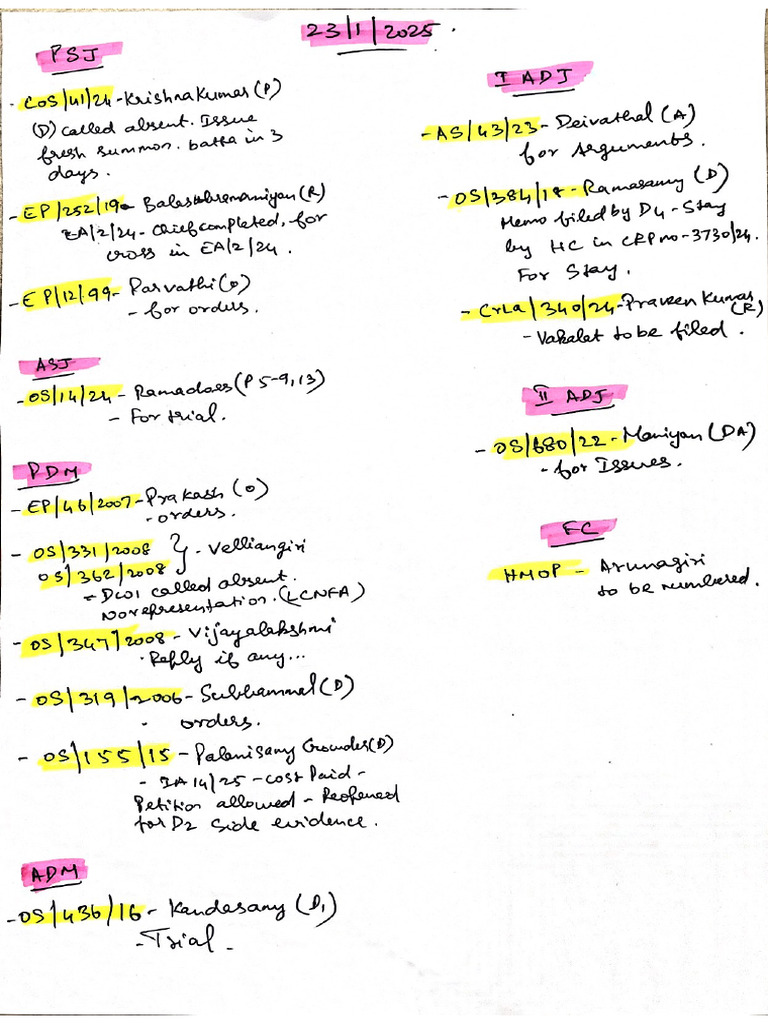 23/1/2025.
PSJ
- COS/41/24 - Krishnakumar (P)
(D) called absent. Issue
fresh summon. batta in 3
days.
- EP/252/19 - Balasubramaniyan (R)
EA/2/24 - Chief completed, for
cross in EA/2/24.
- EP/12/99 - Parvathi (0)
- for orders.
ASJ
- OS/14/24 - Ramadoss (P 5-9, 13)
- For trial.
PDM
- EP/46/2007 - Prakash (0)
- orders.
- OS/331/2008 } - Velliangiri
OS/362/2008
- DW1 called absent.
No representation. (LCNFA)
- OS/347/2008 - Vijayalakshmi
- Reply if any...
- OS/319/2006 - Subbammal (D)
- orders.
- OS/155/15 - Palanisamy Gounder (D)
- IA 14/25 - cost Paid -
Petition allowed - Reopened
for D2 side evidence.
ADM
- OS/436/16 - Kandasamy (D1)
- Trial -
I ADJ
- AS/43/23 - Deivathal (A)
for Arguments.
- OS/384/18 - Ramasamy (D)
Memo filed by D4 - Stay
by HC in CRP no - 3730/24.
For Stay.
- CrLa/340/24 - Praveen Kumar
(R)
- Vakalat to be filed.
II ADJ
- OS/680/22 - Maniyan (DA)
- for Issues.
FC
HMOP - Arunagiri
to be numbered.